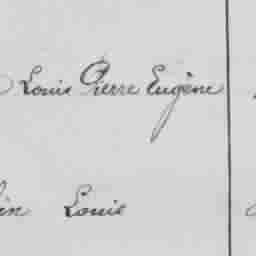 Louis Pierre Eugène
Louis